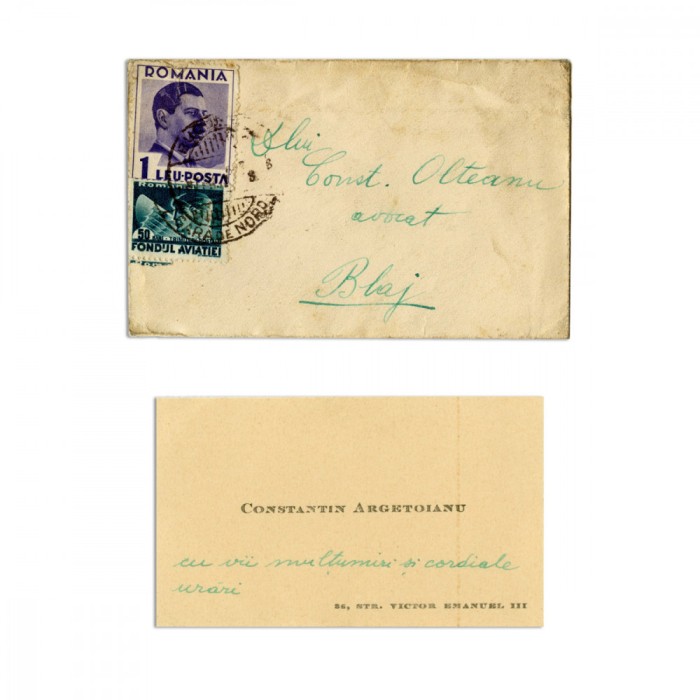 ROMANIA
1 LEU-POSTA
Romania
50
FONDUL AVIAȚIEI
GARA DE NORD
8
Dlui
Const. Olteanu
avocat
Blaj
CONSTANTIN ARGETOIANU
cu vii mulțumiri și cordiale
urări
86, STR. VICTOR EMANUEL III